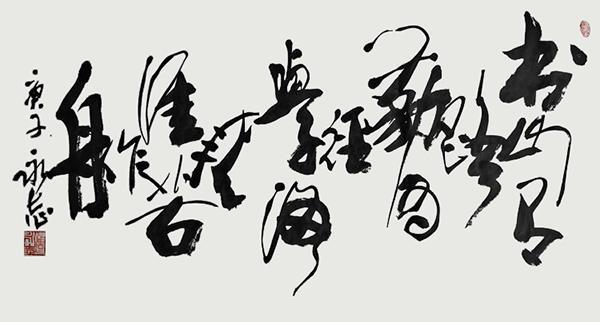 书山有
路
勤为
径
学海
无
涯苦
作
舟
庚子永志